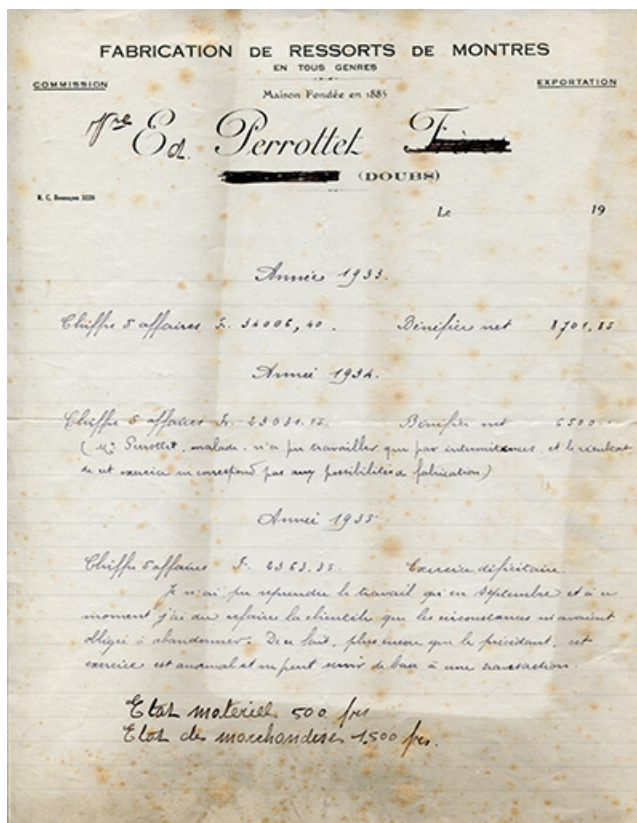 FABRICATION DE RESSORTS DE MONTRES
EN TOUS GENRES
COMMISSION
EXPORTATION
Maison Fondée en 1885
Vve Ed. Perrottet Frères
(DOUBS)
R. C. Besançon
Le 19
Année 1933.
Chiffre d'affaires Fr. 34006,40. Bénéfice net 8,701,85
Année 1934.
Chiffre d'affaires Fr. 23031.15. Bénéfice net 6500.--
(Mr Perrottet, malade, n'a pu travailler que par intermitences et le résultat
de cet exercice ne correspond pas aux possibilités de fabrication.)
Année 1935
Chiffre d'affaires Fr. 2363.35. Exercice déficitaire.
Je n'ai pu reprendre le travail qu'en Septembre et à ce
moment j'ai du refaire la clientèle que les circonstances m'avaient
obligé à abandonner. De ce fait, plus encore que le précédent, cet
exercice est anormal et ne peut servir de base à une transaction.
Etat materiel 500 frs
Etat des marchandises 1.500 frs.